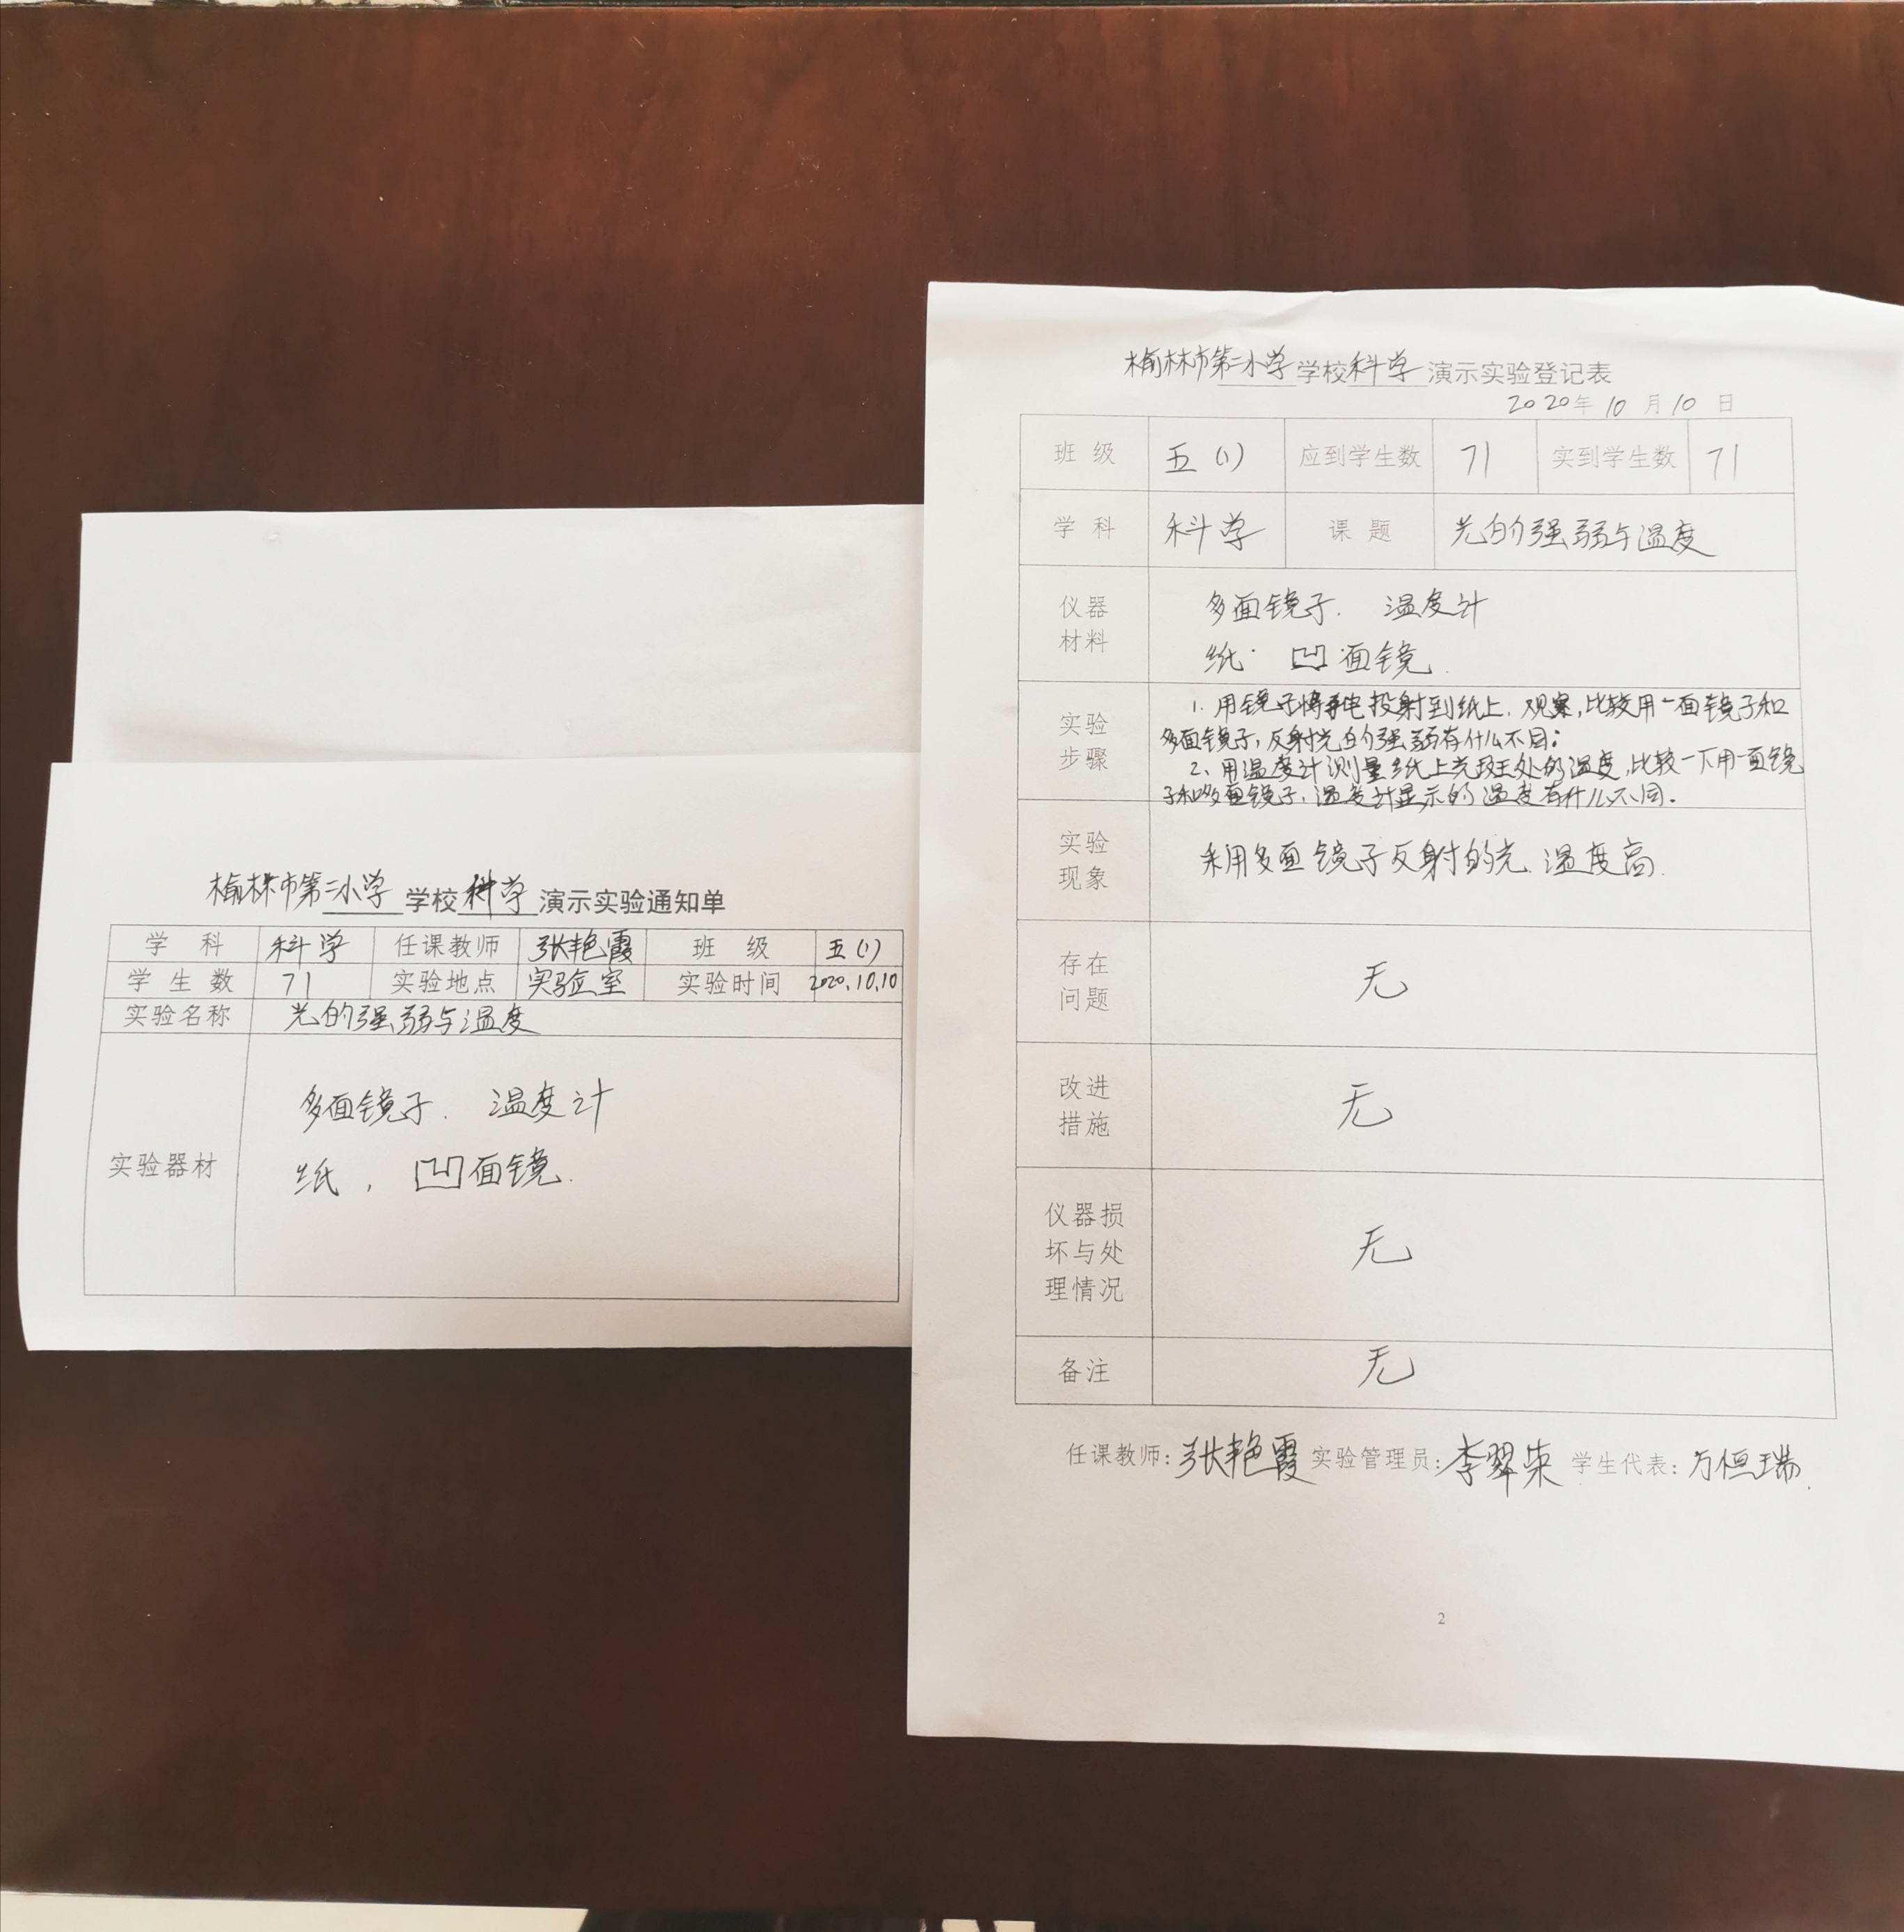 榆林市第二小学学校科学演示实验通知单
学科 科学 任课教师 张艳霞 班级 五(1)
学生数 71 实验地点 实验室 实验时间 2020.10.10
实验名称 光的强弱与温度
实验器材
多面镜子. 温度计
纸, 凹面镜.
榆林市第二小学学校科学演示实验登记表
2020年10月10日
班级 五(1) 应到学生数 71 实到学生数 71
学科 科学 课题 光的强弱与温度
仪器
材料
多面镜子. 温度计
纸. 凹面镜.
实验
步骤
1. 用镜子将手电投射到纸上, 观察, 比较用一面镜子和
多面镜子, 反射光的强弱有什么不同;
2、用温度计测量纸上光斑处的温度, 比较一下用一面镜
子和多面镜子, 温度计显示的温度有什么不同.
实验
现象
利用多面镜子反射的光. 温度高.
存在
问题
无
改进
措施
无
仪器损
坏与处
理情况
无
备注 无
任课教师: 张艳霞 实验管理员: 李翠 学生代表: 万恒瑞.
2